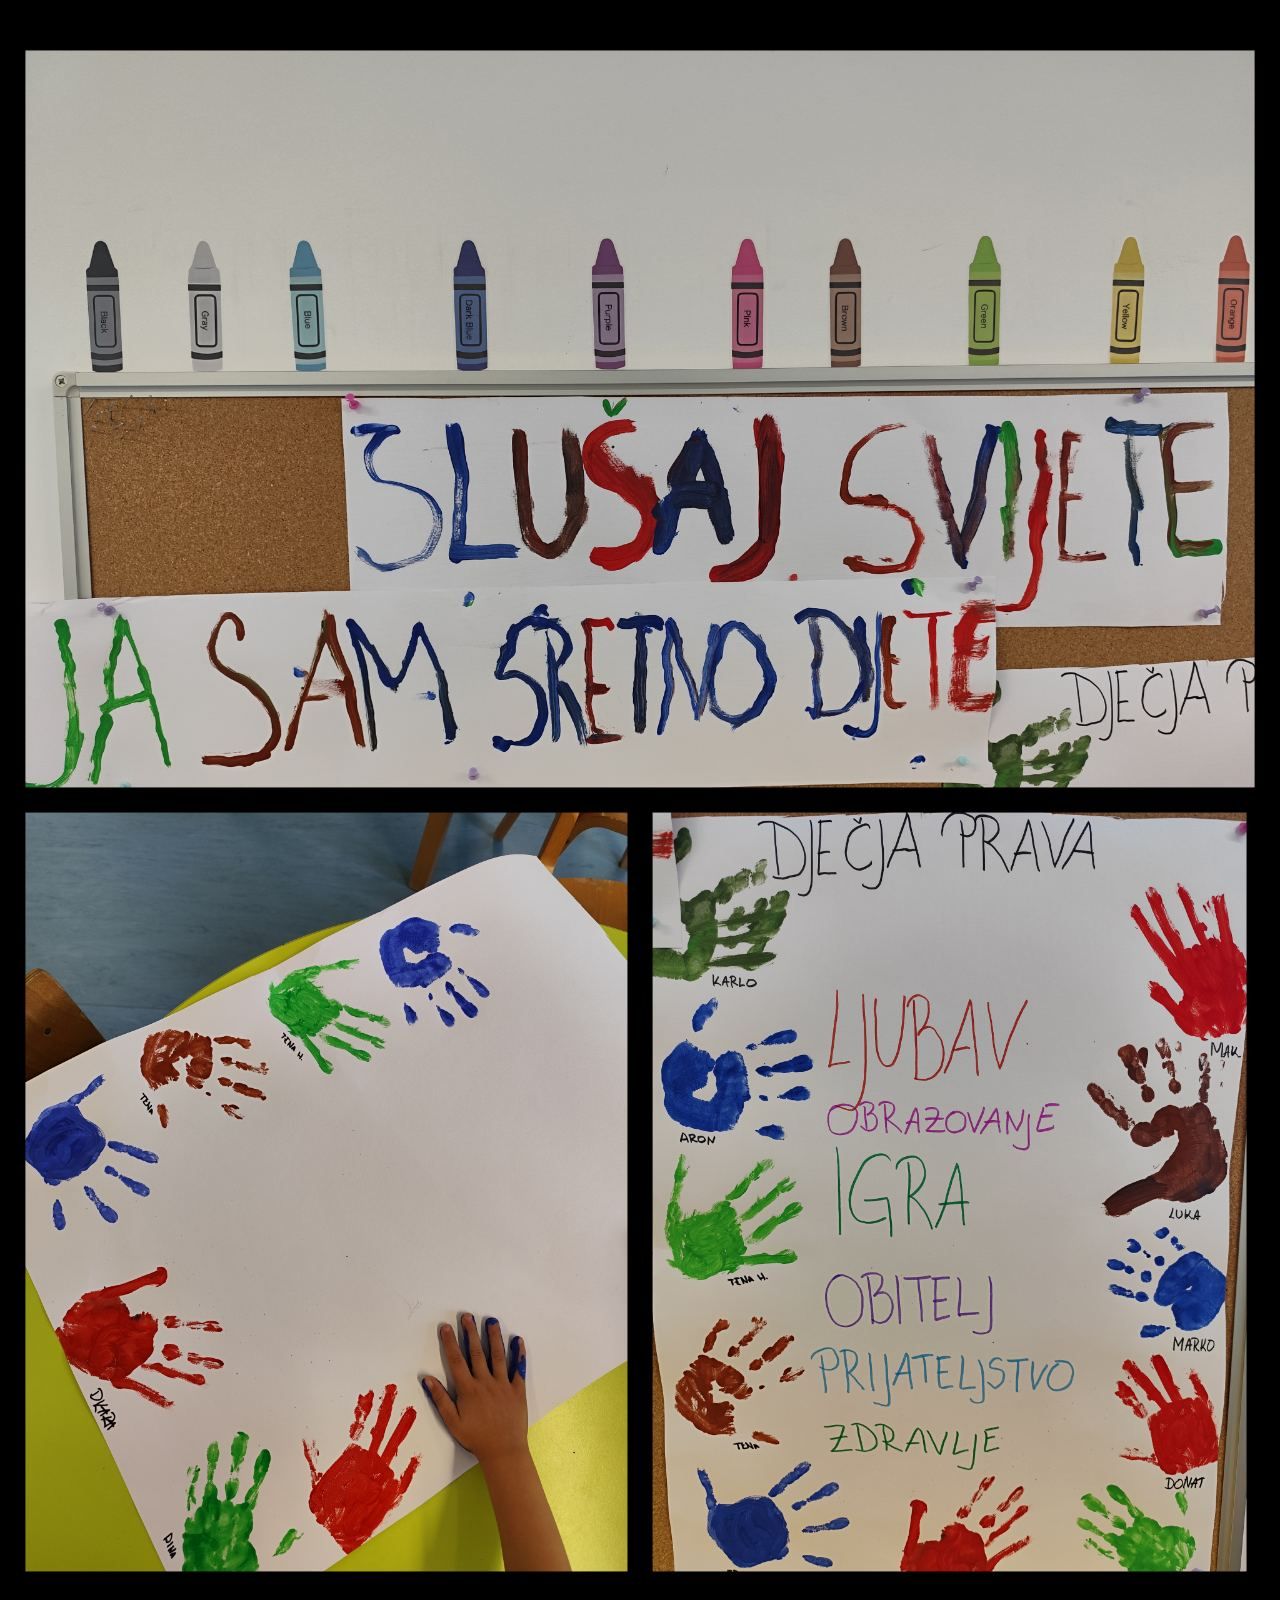 Black
Gray
Blue
Dark Blue
Purple
Pink
Brown
Green
Yellow
Orange
SLUŠAJ SVIJETE
JA SAM SRETNO DIJETE
DJEČJA P
TENA H.
TENA
DIJARA
DINA
DJEČJA PRAVA
KARLO
MAK
LJUBAV
OBRAZOVANJE
ARON
IGRA
LUKA
TENA H.
OBITELJ
MARKO
PRIJATELJSTVO
ZDRAVLJE
TENA
DONAT